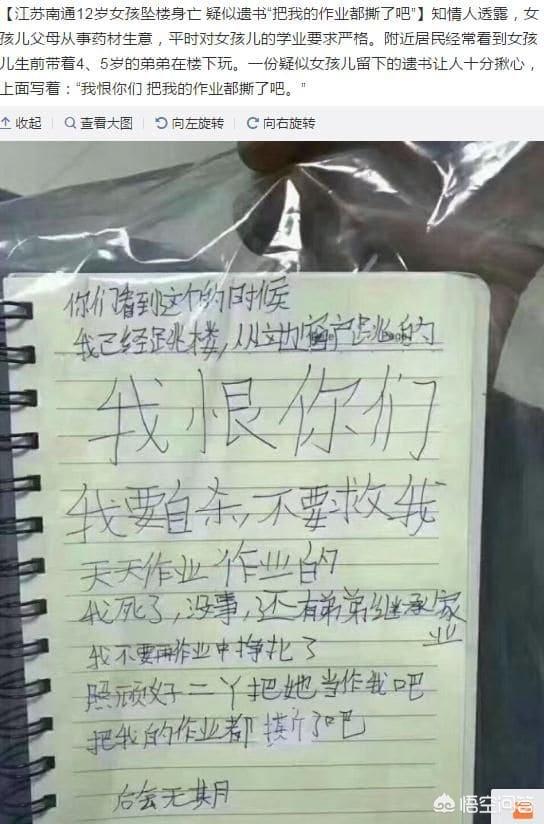 【江苏南通12岁女孩坠楼身亡 疑似遗书“把我的作业都撕了吧”】知情人透露，女
孩儿父母从事药材生意，平时对女孩儿的学业要求严格。附近居民经常看到女孩
儿生前带着4、5岁的弟弟在楼下玩。一份疑似女孩儿留下的遗书让人十分揪心，
上面写着：“我恨你们 把我的作业都撕了吧。”
收起 查看大图 向左旋转 向右旋转
你们看到这个的时候
我已经跳楼，从这边窗户跳的
我恨你们
我要自杀，不要救我
天天作业作业的
我死了，没事，还有弟弟继承家业
我不要再作业中挣扎了
照顾好二丫把她当作我吧
把我的作业都撕了吧
后会无期
悟空问答